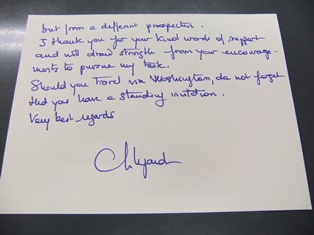 but from a different prospective.
I thank you for your kind words of support
and will draw strength from your encourage-
ments to pursue my task.
Should you travel via Washington, do not forget
that you have a standing invitation.
Very best regards